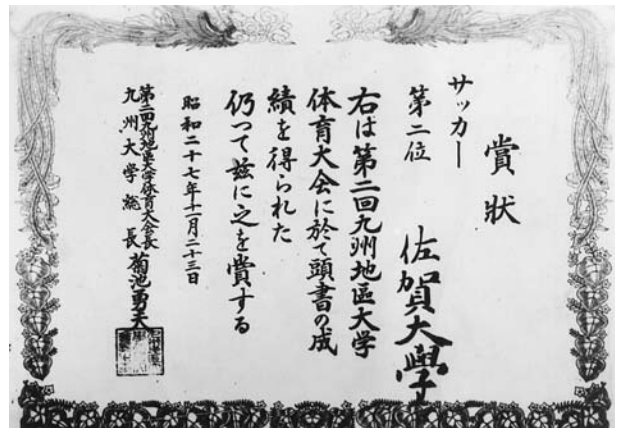 賞狀
サッカー
第二位
佐賀大學
右は第二回九州地區大学
体育大会に於て頭書の成
績を得られた
仍つて茲に之を賞する
昭和二十七年十一月二十三日
第二回九州地區大学体育大会長
九州大学総長 菊池勇夫